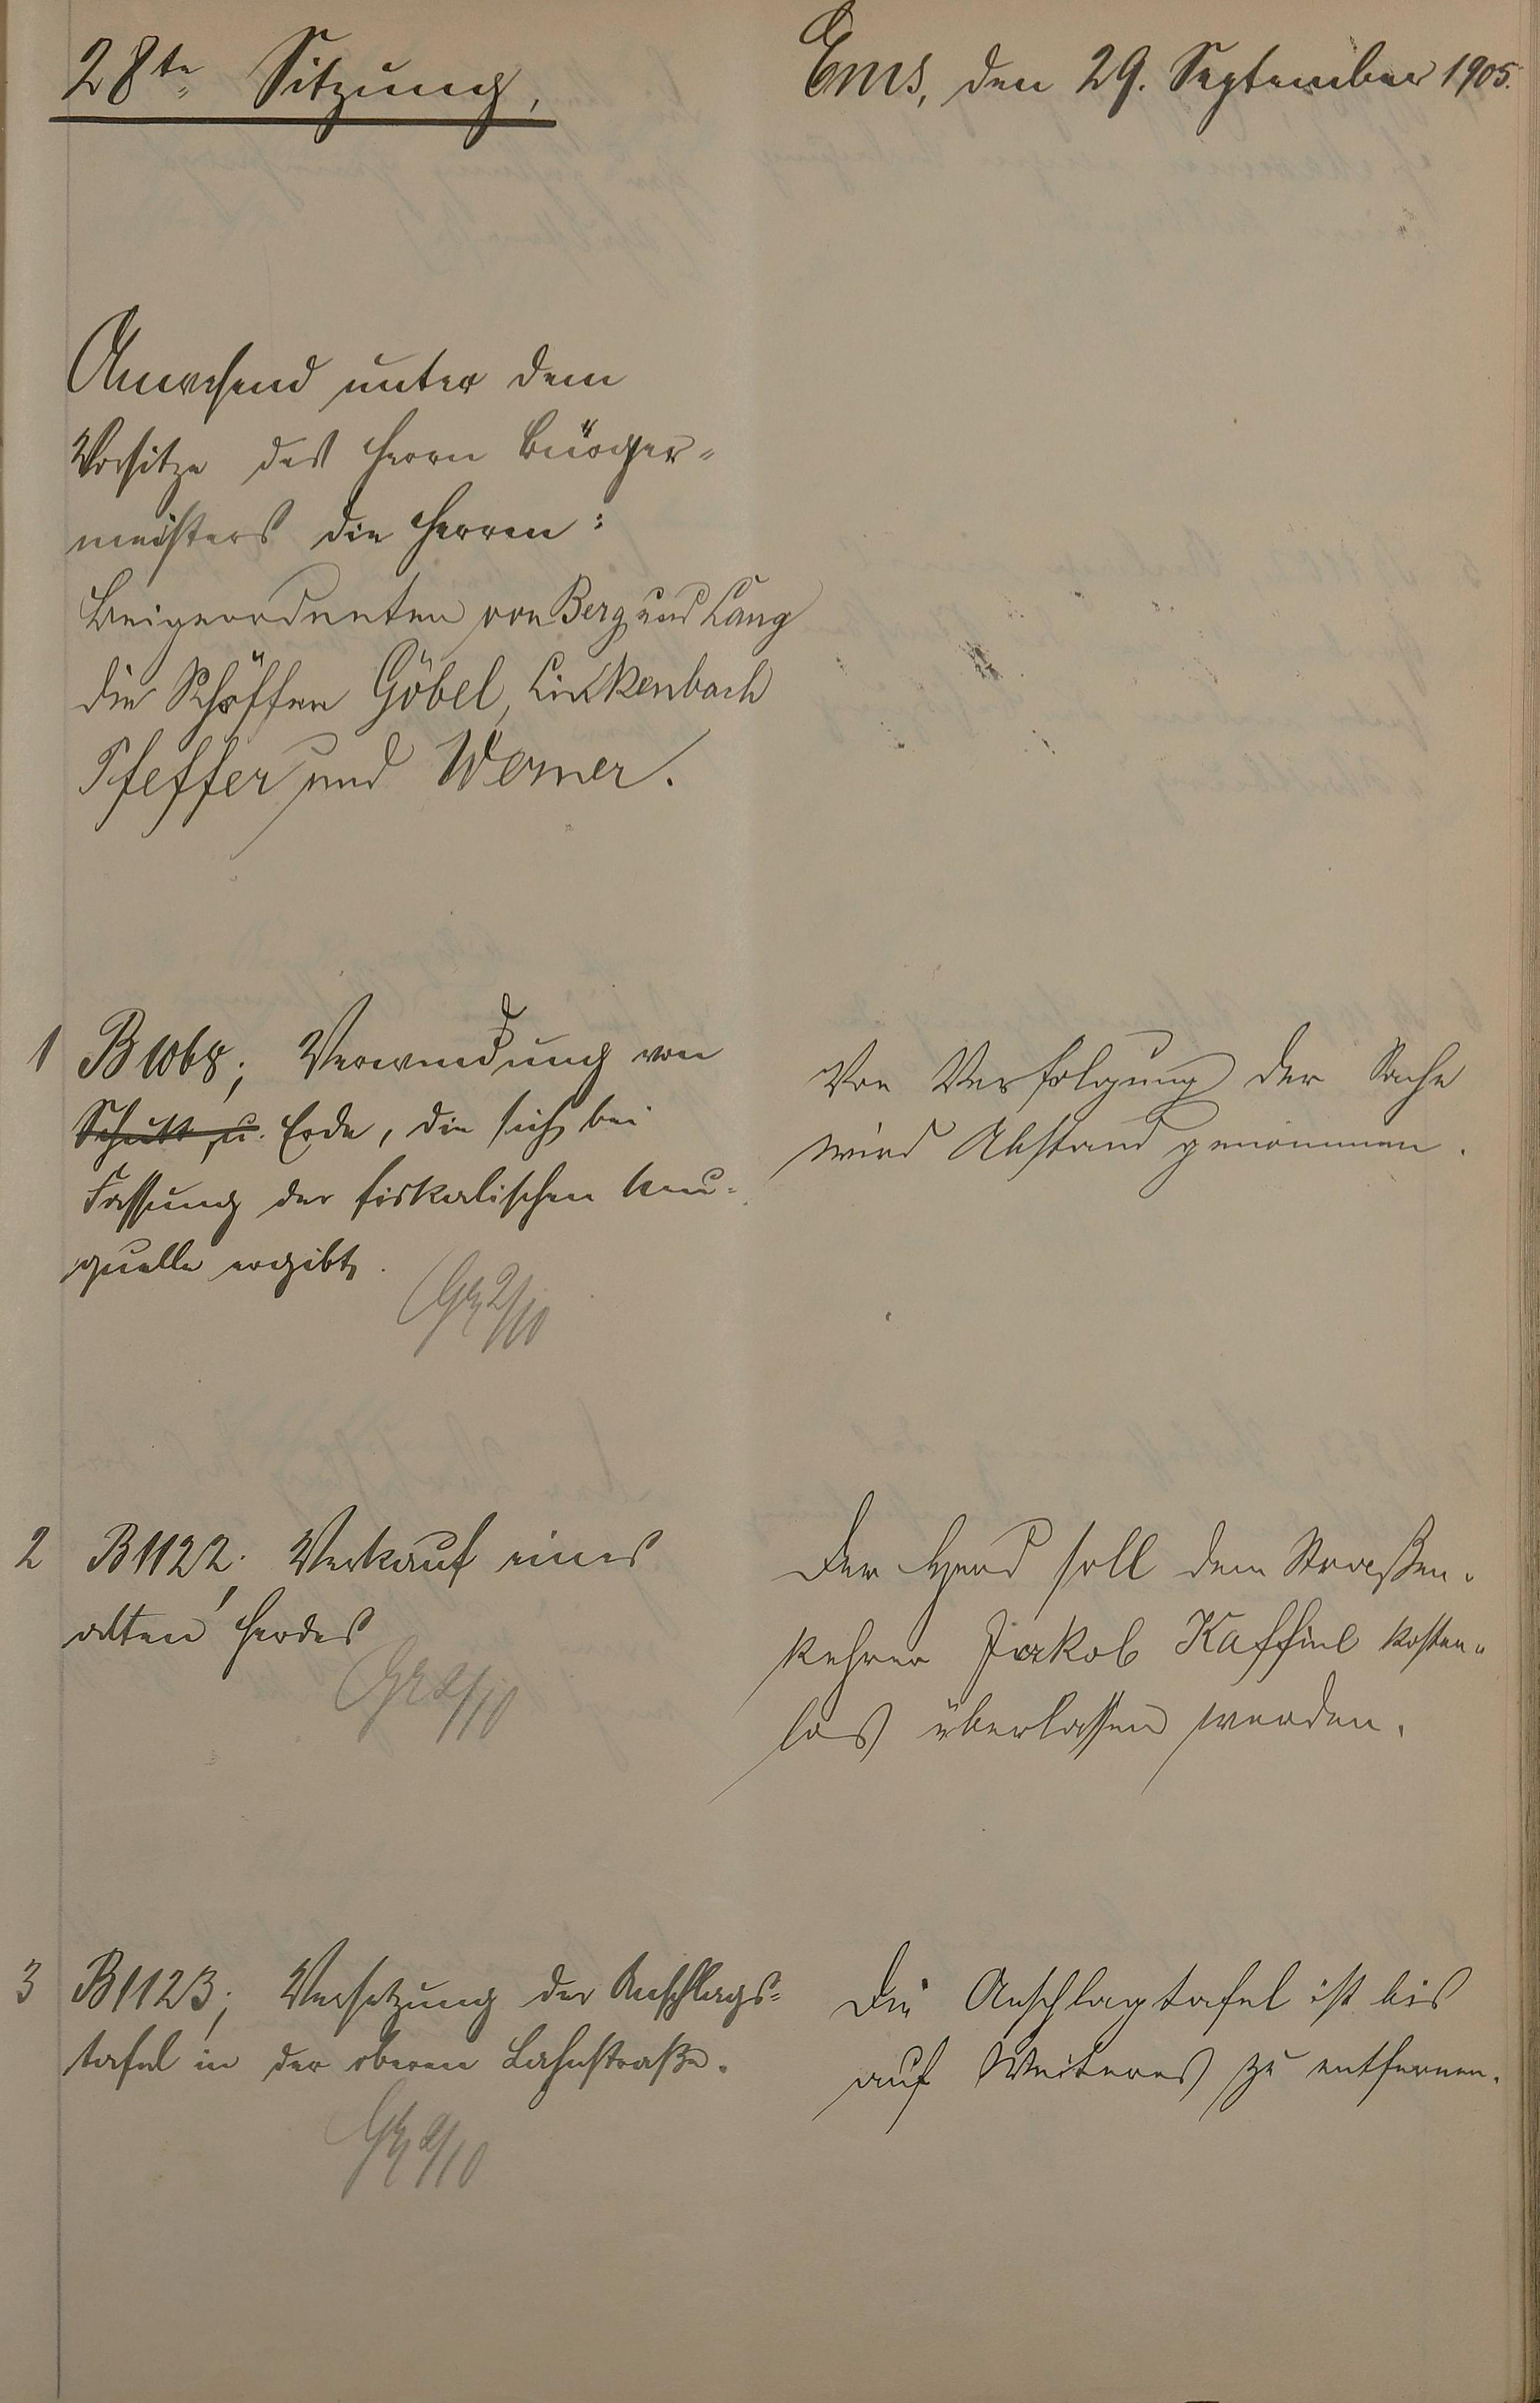 28te Sitzung,
Ems, den 29. September 1905.
Anwesend unter dem
Vorsitze des Herrn Bürger-
meisters die Herren:
Beigeordneten von Berg und Lang
die Schöffen Göbel, Linkenbach
Pfeffer und Werner.
1 B 1068; Verwendung von
Schutt u. Erde, die sich bei
Fassung der fiskalischen Neu-
quelle ergibt.
Von Verfolgung der Sache
wird Abstand genommen.
2 B 1122; Verkauf eines
alten Herdes
Der Herd soll dem Straßen-
kehrer Jakob Kaffine kosten-
los überlassen werden.
3 B 1123; Versetzung der Anschlags-
tafel in der oberen Lahnstraße.
Die Anschlagtafel ist bis
auf Weiteres zu entfernen.